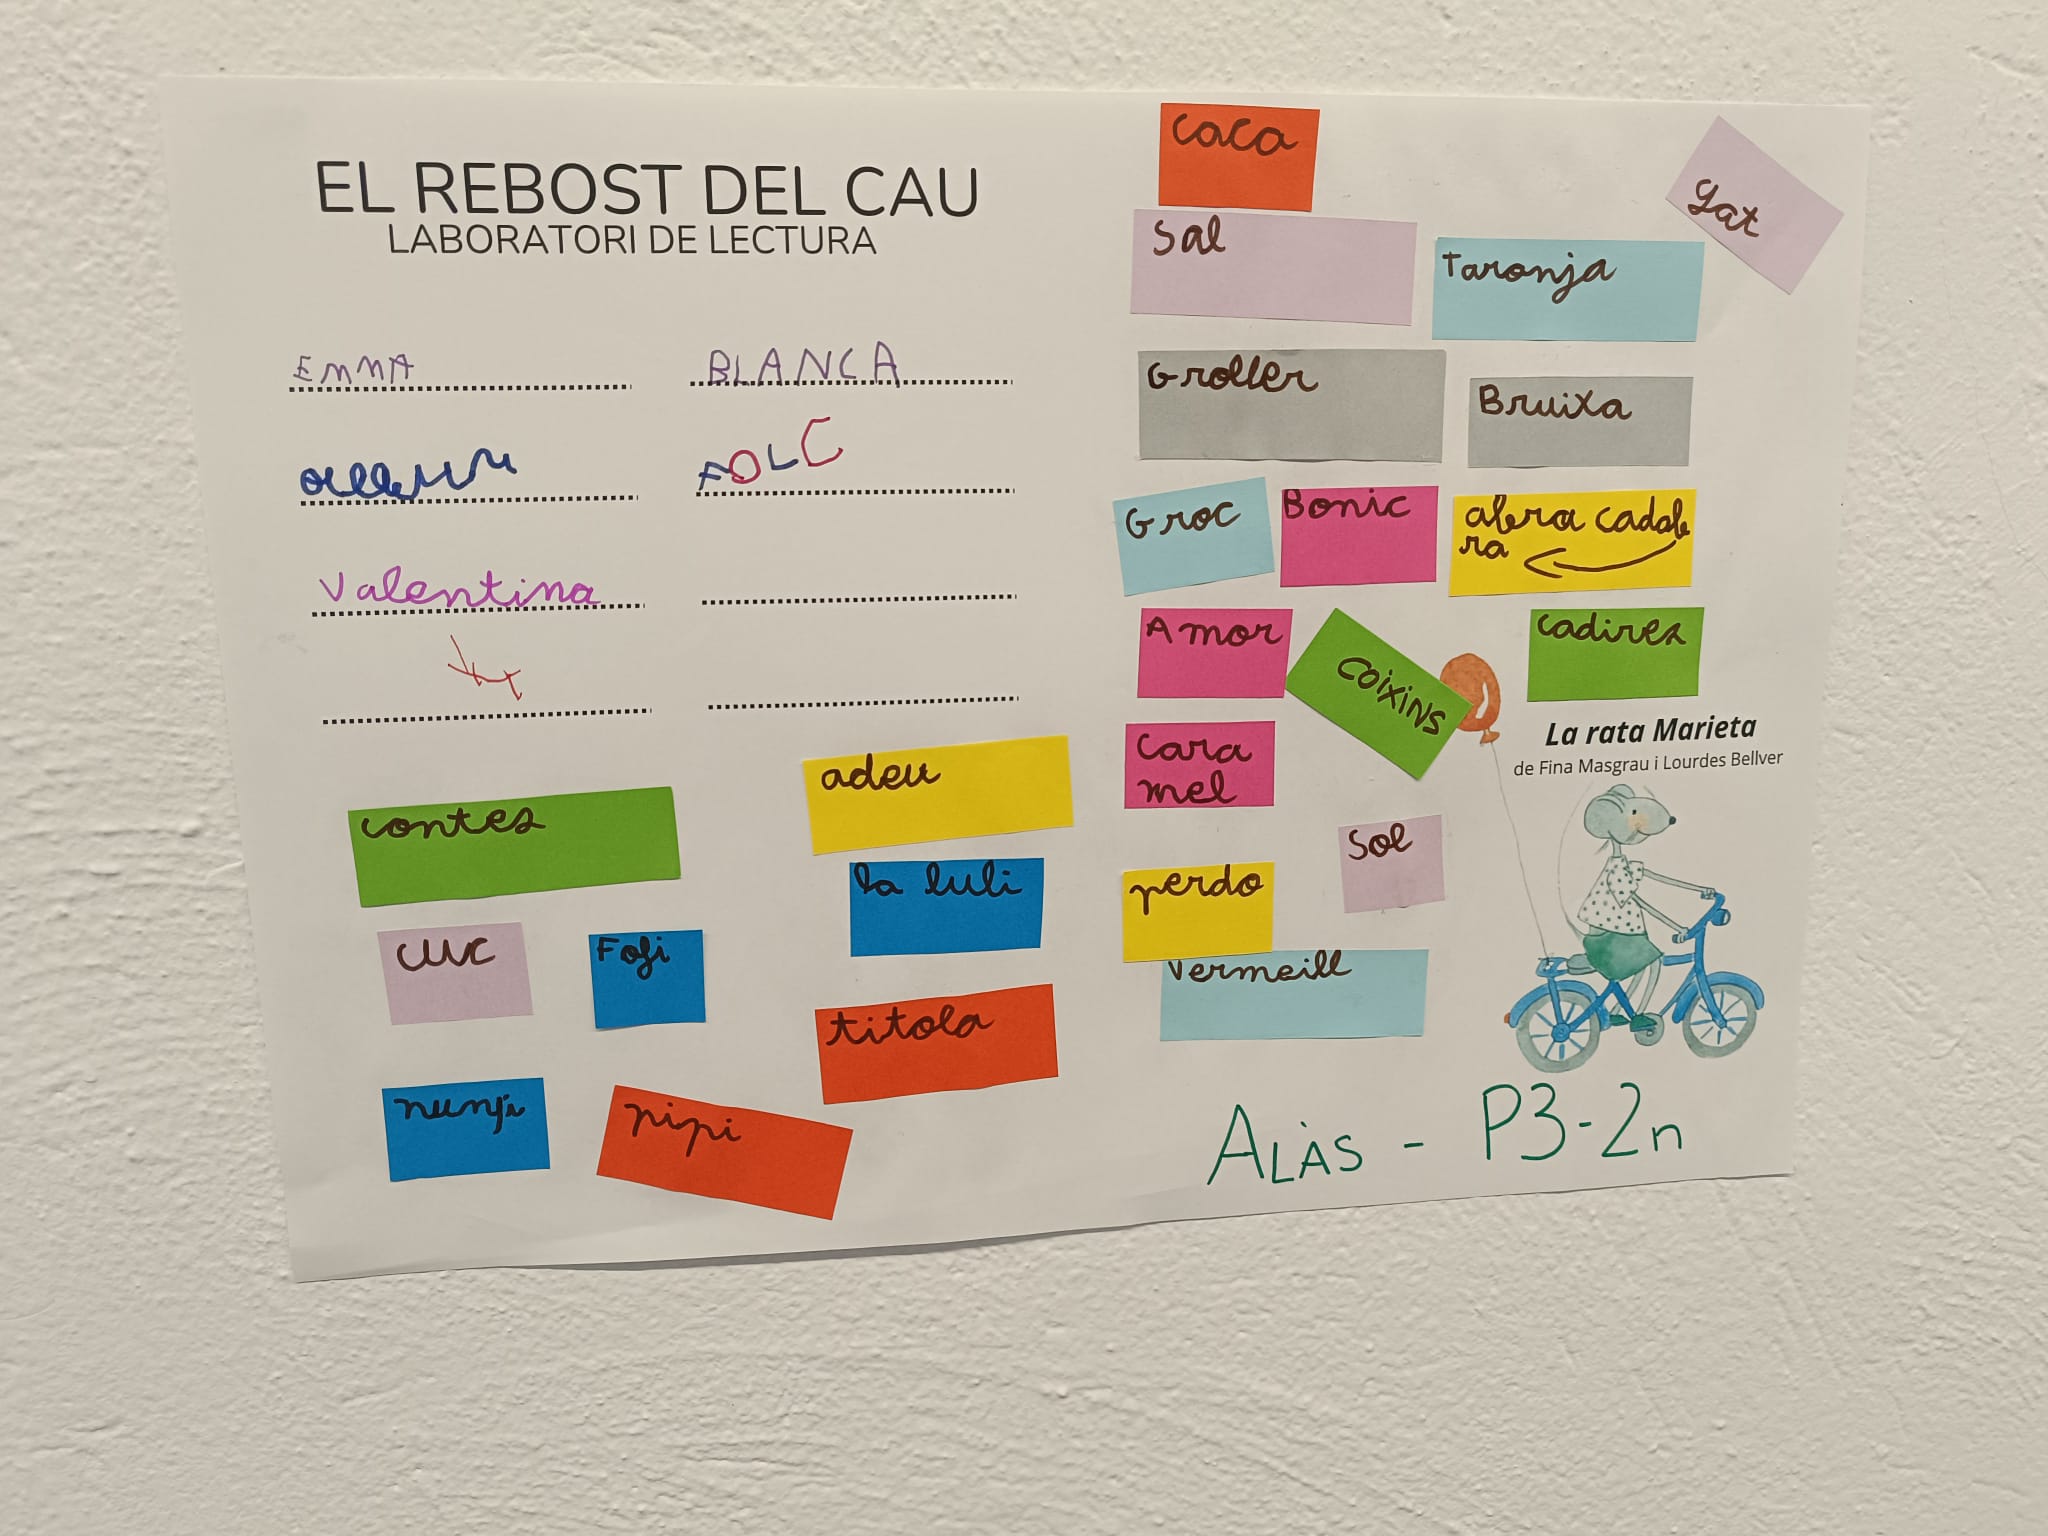 EL REBOST DEL CAU
LABORATORI DE LECTURA
EMMA
BLANCA
FOLC
Valentina
contes
adeu
la luli
cuc
Fofi
titola
nunja
pipi
caca
gat
Sal
Taronja
Groller
Bruixa
Groc
Bonic
abra cadab
ra
Amor
COIXINS
cadires
cara
mel
Sol
perdo
Vermeill
La rata Marieta
de Fina Masgrau i Lourdes Bellver
ALÀS - P3-2n